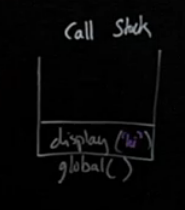 Call Stack
display("hi")
global()